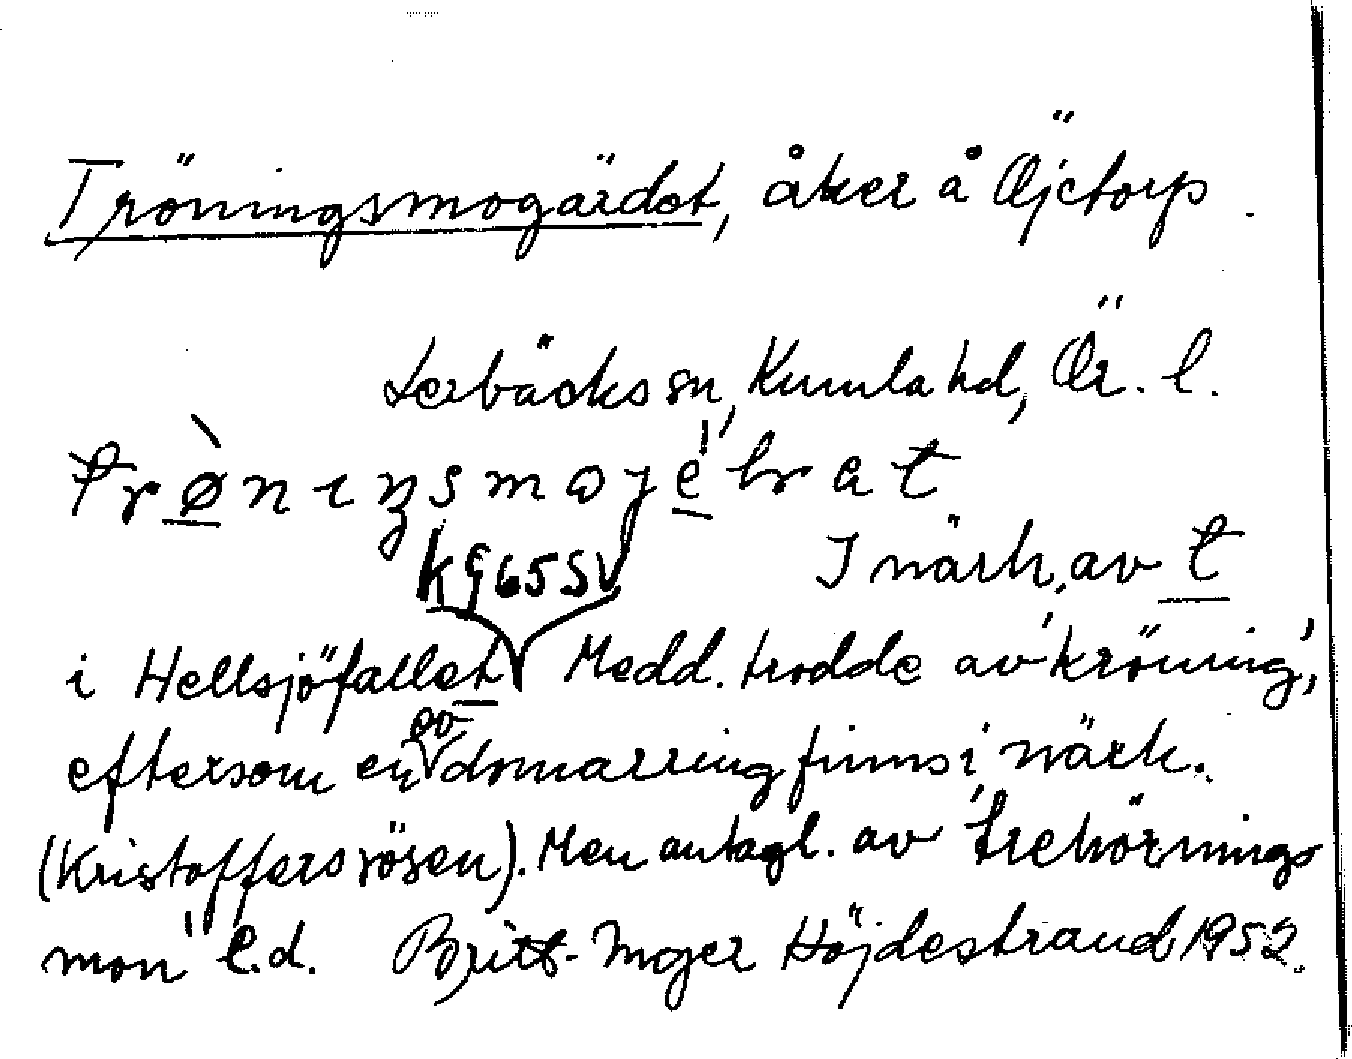 Tröningsmogärdet, åker å Öjetorp.
Lerbäcks sn, Kumla hd, Ör. l.
trø̀nıŋsmojèḷṛat
kg 65 SV I närh. av t
i Hellsjöfallet Medd. trodde av 'kröning',
eftersom en domarring finns i närh.
(Kristoffers rösen). Men antagl. av 'trehörnings
mon' e.d. Britt-Inger Höjdestrand 1952.